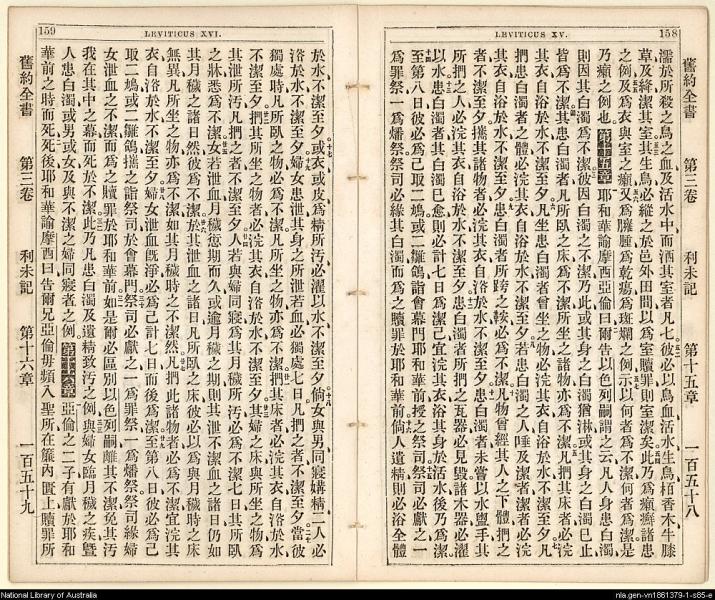 158
LEVITICUS XV.
舊約全書 第三卷 利未記 第十五章 一百五十八
濡於所殺之鳥之血及活水中而洒其室者凡七彼必以鳥血活水生鳥栢香木牛膝
草及絳潔其室其生鳥必縱之於邑外田間以爲室贖罪則室潔矣此乃爲癩癬諸患
之例及爲衣與室之癩又爲臃腫爲乾瘍爲斑斕之例示以何者爲不潔何者爲潔是
乃癩之例也第十五章耶和華諭摩西亞倫曰爾告以色列嗣謂之云凡人身患白濁
則因其白濁爲不潔彼因白濁之不潔乃此或其身之白濁猶淋或其身之白濁已止
皆爲不潔其患白濁者凡所臥之床爲不潔所坐之諸物亦爲不潔凡捫其床者必浣
其衣自浴於水不潔至夕凡坐患白濁者曾坐之物必浣其衣自浴於水不潔至夕凡
捫患白濁者之體必浣其衣自浴於水不潔至夕若患白濁之人唾及潔者潔者必浣
其衣自浴於水不潔至夕患白濁者所跨之鞍必爲不潔凡物曾經其人之下體捫之
者不潔至夕攜其諸物者必浣其衣自浴於水不潔至夕患白濁者未嘗以水盥手其
所捫之人必浣其衣自浴於水不潔至夕患白濁者所捫之瓦器必見毀諸木器必濯
以水患白濁者其白濁已愈則必計七日爲潔己宜浣其衣浴其身於活水後乃爲潔
至第八日彼必爲己取二鳩或二雛鴿詣會幕門耶和華前授之祭司祭司必獻之一
爲罪祭一爲燔祭祭司必緣其白濁而爲之贖罪於耶和華前倘人遺精則必浴全體
159
LEVITICUS XVI.
於水不潔至夕或衣或皮爲精所污必濯以水不潔至夕倘女與男同寢媾精二人必
浴於水不潔至夕婦女患泄其身之所泄若血必獨處七日凡捫之者不潔至夕當彼
獨處時凡所臥之物必爲不潔凡所坐之物亦爲不潔凡捫其床者必浣其衣自浴於水
不潔至夕捫其所坐之物者必浣其衣自浴於水不潔至夕其婦之床與所坐之物爲
其泄所污凡捫之者不潔至夕人若與婦同寢爲其月穢所污必爲不潔七日其所臥
之牀悉爲不潔女若泄血月穢愆期而久或逾月穢之期則其泄不潔血之諸日仍如
其月穢之諸日然彼爲不潔於其泄血之諸日凡所臥之床彼必以爲與月穢時之床
無異凡所坐之物亦爲不潔如其月穢時之不潔然凡捫此諸物者必爲不潔宜浣其
衣自浴於水不潔至夕婦女泄血既淨必爲己計七日而後爲潔至第八日彼必爲己
取二鳩或二雛鴿攜之詣祭司於會幕門祭司必獻之一爲罪祭一爲燔祭祭司緣婦
女泄血之不潔而爲之贖罪於耶和華前如是爾必區別以色列嗣離其不潔免其污
我在其中之幕而死於不潔此乃凡患白濁及遺精致汚之例與婦女臨月穢之疾曁
人患白濁或男或女及與不潔之婦同寢者之例第十六章亞倫之二子有獻於耶和
華前之時而死死後耶和華諭摩西曰告爾兄亞倫毋頻入聖所在簾內匱上贖罪所
舊約全書 第三卷 利未記 第十六章 一百五十九
National Library of Australia
nla.gen-vn1861379-1-s85-e